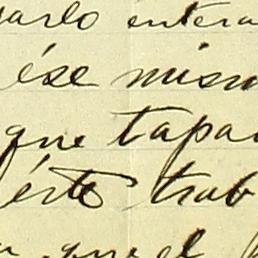 arlo entera
ése mism
que tapa
éste trab
que el